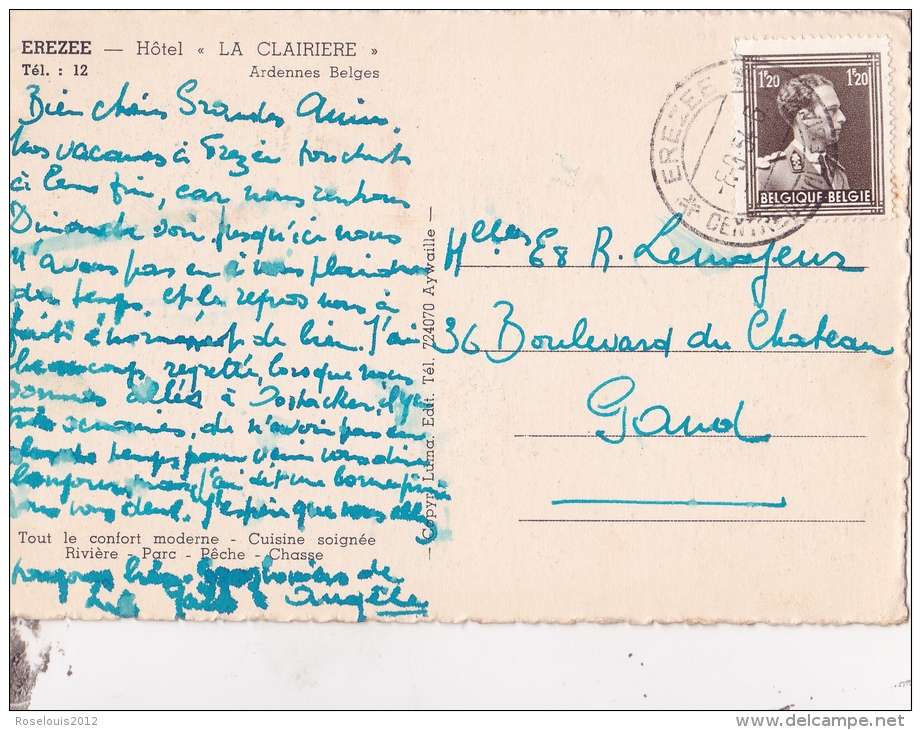 EREZEE — Hôtel « LA CLAIRIERE »
Tél. : 12 Ardennes Belges
Bien chères Grandes Amies,
Nos vacances à Erezée touchent
à leur fin, car nous rentrons
Dimanche soir. Jusqu'ici nous
n'avons pas eu à nous plaindre
du temps, et le repos nous a
fait énormément de bien. J'ai
beaucoup regretté, lorsque nous
sommes allés à Oostacker, il y a
semaines, de n'avoir pas eu
temps pour venir vous dire
bonjour, mais j'ai dit une bonne prière
pour vous deux. J'espère que vous allez
Tout le confort moderne - Cuisine soignée
Rivière - Parc - Pêche - Chasse
toujours bien. de
Angèle
— Copyr. Luma. Edit. Tél. 724070 Aywaille —
EREZEE
CENTRE
1F20 1F20
BELGIQUE·BELGIE
Melles E & R. Lemajeur
36 Boulevard du Chateau
Gand
Roselouis2012
delcampe.net